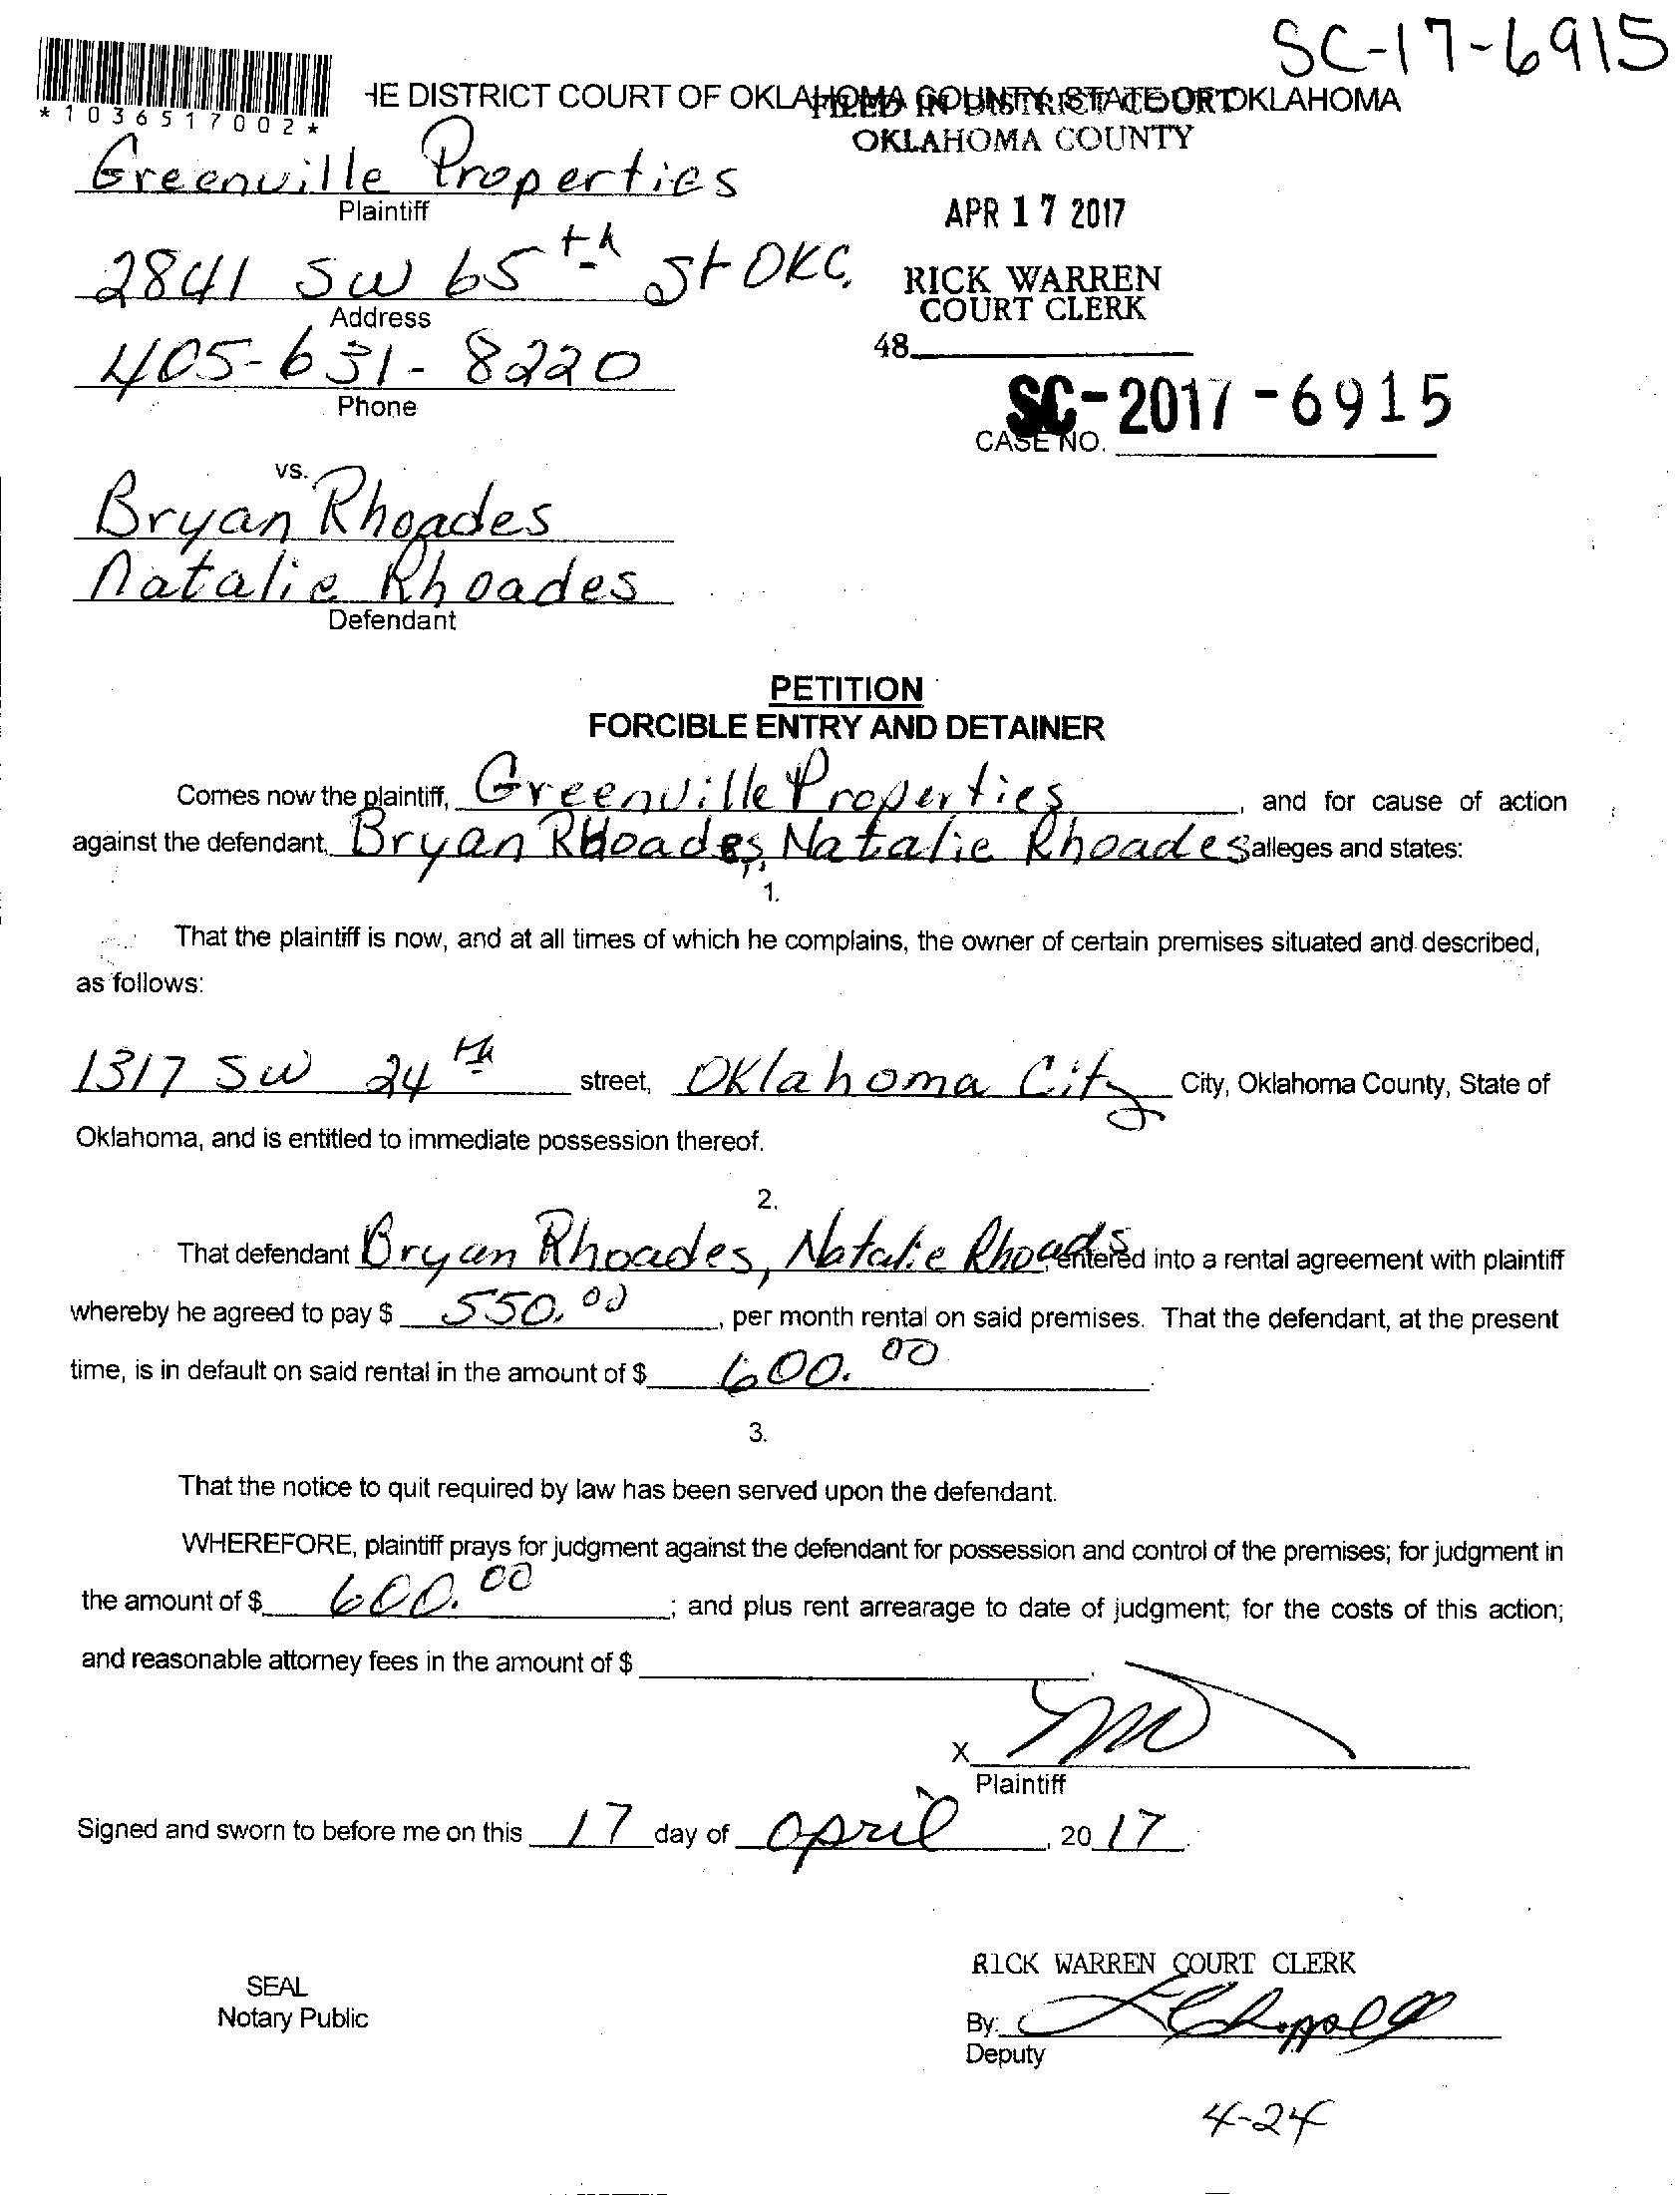 SC-17-6915
*1036517002*
HE DISTRICT COURT OF OKLAHOMA COUNTY, STATE OF OKLAHOMA
FILED IN DISTRICT COURT
OKLAHOMA COUNTY
Greenville Properties
Plaintiff
APR 17 2017
2841 SW 65th St OKC.
Address
RICK WARREN
COURT CLERK
405-631-8220
Phone
48
SC-2017-6915
CASE NO.
vs.
Bryan Rhoades
Natalie Rhoades
Defendant
PETITION
FORCIBLE ENTRY AND DETAINER
Comes now the plaintiff, Greenville Properties, and for cause of action
against the defendant, Bryan Rhoades, Natalie Rhoades alleges and states:
1.
That the plaintiff is now, and at all times of which he complains, the owner of certain premises situated and described,
as follows:
1317 SW 24th street, Oklahoma City City, Oklahoma County, State of
Oklahoma, and is entitled to immediate possession thereof.
2.
That defendant Bryan Rhoades, Natalie Rhoads entered into a rental agreement with plaintiff
whereby he agreed to pay $ 550.00, per month rental on said premises. That the defendant, at the present
time, is in default on said rental in the amount of $ 600.00.
3.
That the notice to quit required by law has been served upon the defendant.
WHEREFORE, plaintiff prays for judgment against the defendant for possession and control of the premises; for judgment in
the amount of $ 600.00; and plus rent arrearage to date of judgment; for the costs of this action;
and reasonable attorney fees in the amount of $
X
Plaintiff
Signed and sworn to before me on this 17 day of April, 2017.
RICK WARREN COURT CLERK
SEAL
Notary Public
By:
Deputy
4-24